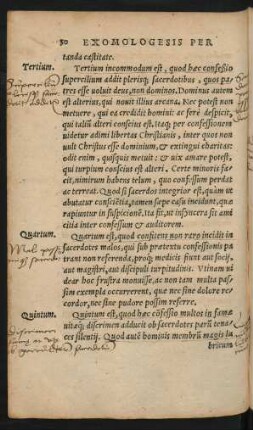 50 EXOMOLOGESIS PER
tanda castitate.
Tertium. Tertium incommodum est, quod hæc confeßio
supercilium addit plerisq; sacerdotibus, quos pa-
tres esse voluit deus, non dominos. Dominus autem
est alterius, qui nouit illius arcana. Nec potest non
metuere, qui ea credidit homini: ac ferè despicit,
qui talia alteri conscius est. Itaq; per confessionem
uidetur adimi libertas Christianis, inter quos non
uult Christus esse dominium, & extingui charitas:
odit enim, quisquis metuit: & uix amare potest,
qui turpium conscius est alteri. Certe minoris face-
ret, nimirum habens telum, quo confessum perdat
ac terreat. Quod si sacerdos integrior est, quàm ut
abutatur conscientia, tamen sepe casu incidunt, quæ
rapiuntur in suspicionē. Ita fit, ut insyncera sit ami
citia inter confessum & auditorem.
Quartum. Quartum est, quod confitens non rarò incidit in
sacerdotes malos, qui sub prætextu confessionis pa
trant non referenda, proq; medicis fiunt aut socij,
aut magistri, aut discipuli turpitudinis. Vtinam ui
dear hoc frustra monuisse, ac non tam multa pas-
sim exempla occurrerent, quæ nec sine dolore re-
cordor, nec sine pudore possim referre.
Quintum. Quintum est, quod hæc cōfessio multos in famæ
uitæq; discrimen adducit ob sacerdotes parū tenâ-
ces silentij. Quod autē hominis membrū magis lu
bricum